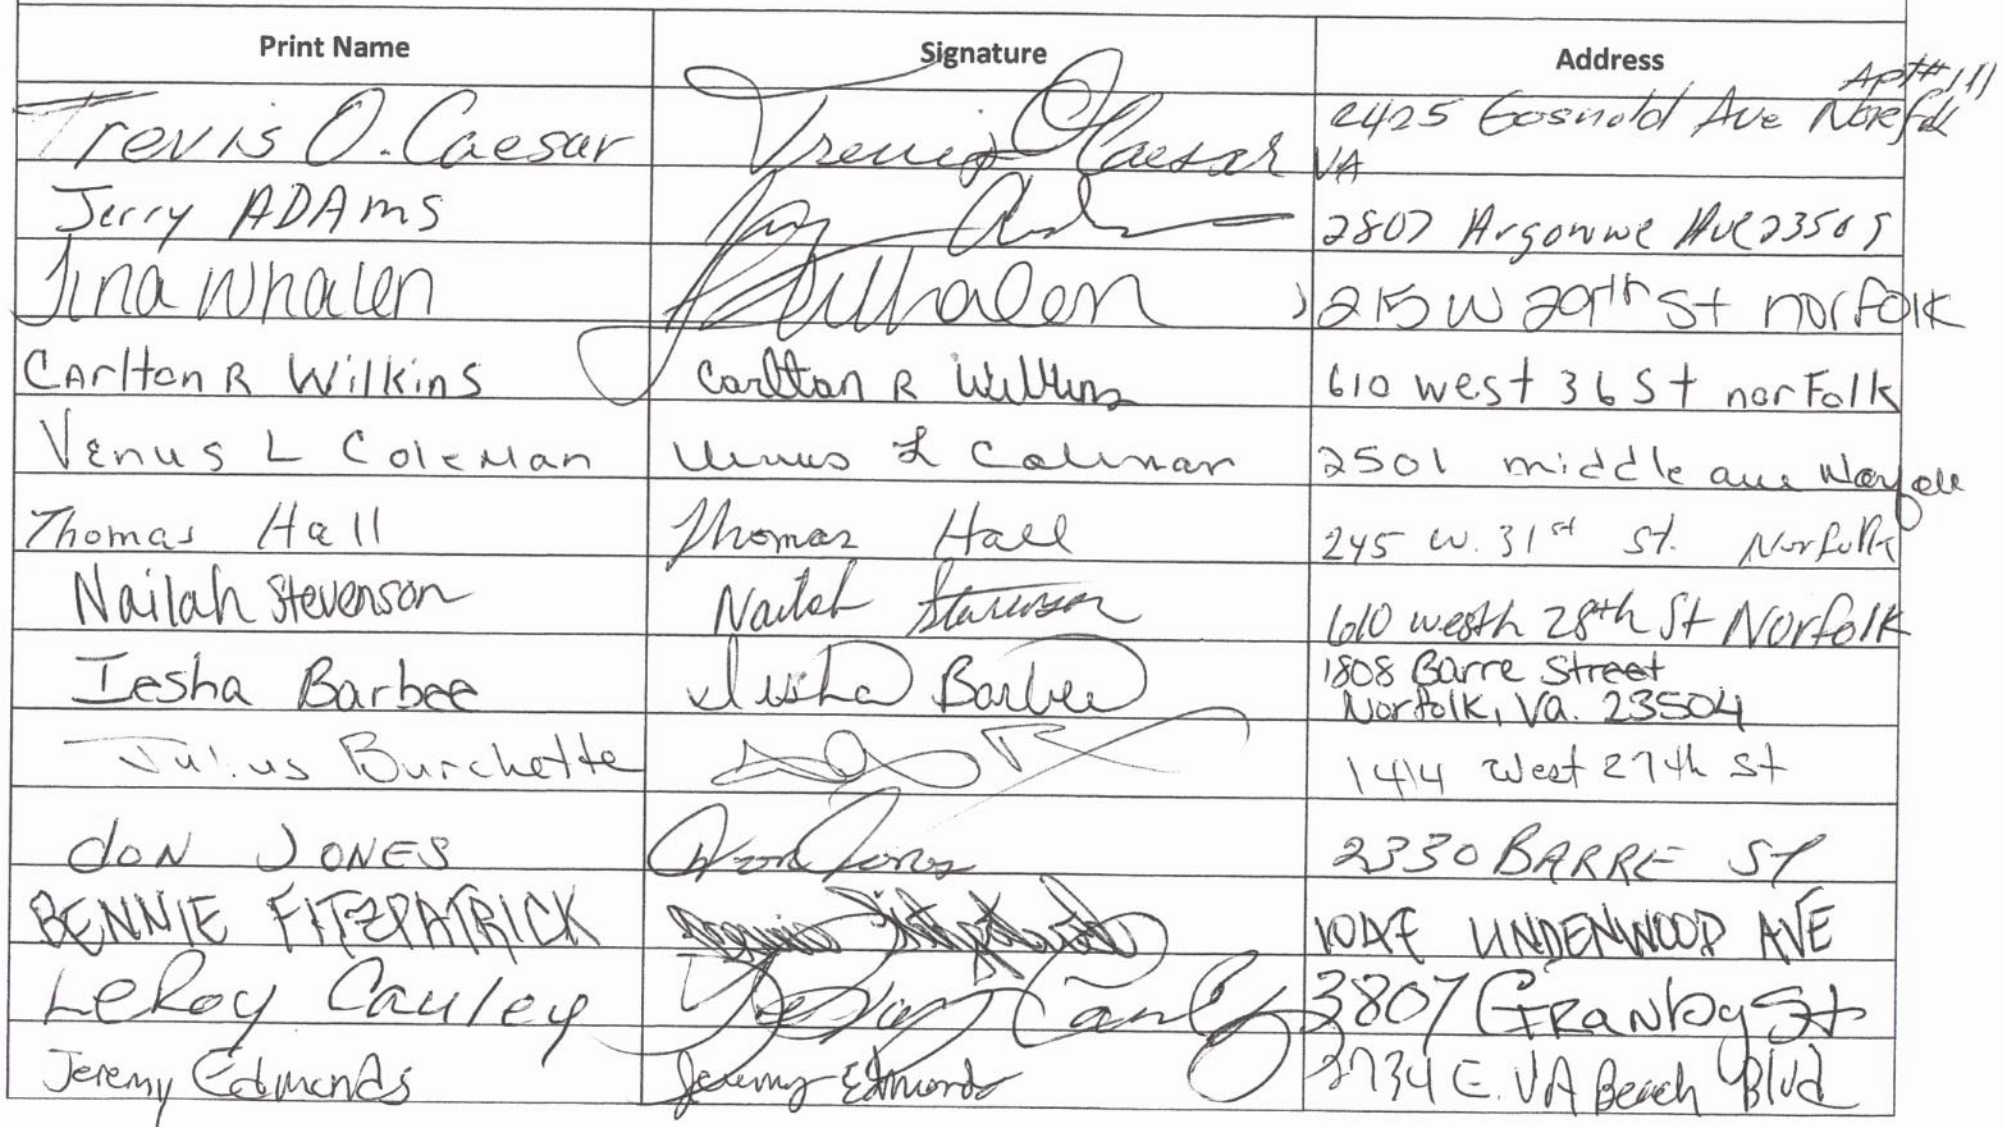 Print Name Signature Address
Apt# 111
Trevis O. Caesar Trevis O Caesar 2425 Gosnold Ave Norfolk
VA
Jerry ADAMS Jerry 2807 Argonne Ave 23509
Tina Whalen Whalen 215 W 29th St norfolk
CArlton R Wilkins Carlton R Wilkins 610 west 36 St norFolk
Venus L Coleman Venus L Coleman 2501 middle ave Norfolk
Thomas Hall Thomas Hall 245 W. 31st St. Norfolk
Nailah Stevenson Nailah Stevenson 610 westh 28th St Norfolk
Iesha Barbee Iesha Barbee 1808 Barre Street
Norfolk, Va. 23504
Julius Burchette 1414 West 27th St
dON JONES Jones 2330 BARRE ST
BENNIE FITZPATRICK AVE
LeRoy Cauley LeRoy Cauley 3807 GRanby St
Jeremy Edmonds Jeremy Edmonds 3734 E. VA Beach Blvd